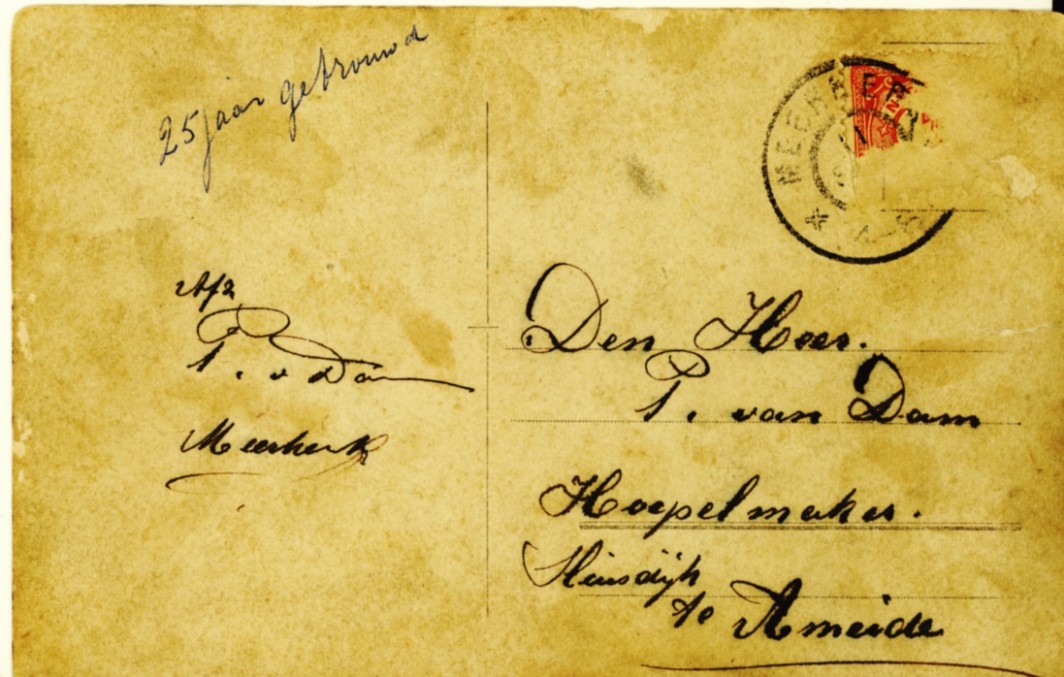 25 jaar getrouwd
Afz
P. v Dam
Meerkerk
MEERKERK
Den Heer.
P. van Dam
Hoepelmaker.
te Ameide